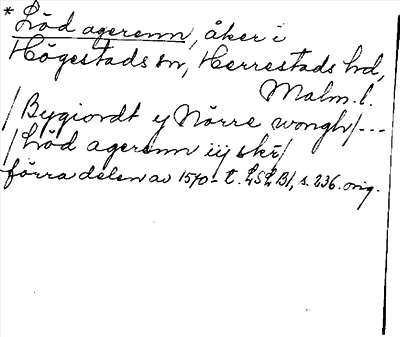 * Löd agerenn, åker i
Högestads sn, Herrestads hd,
Malm. l.
/Bygiordt y Nörre wongh/---
/Löd agerenn iij ske/
förra delen av 1570-t. LSLB1, s. 236. orig.